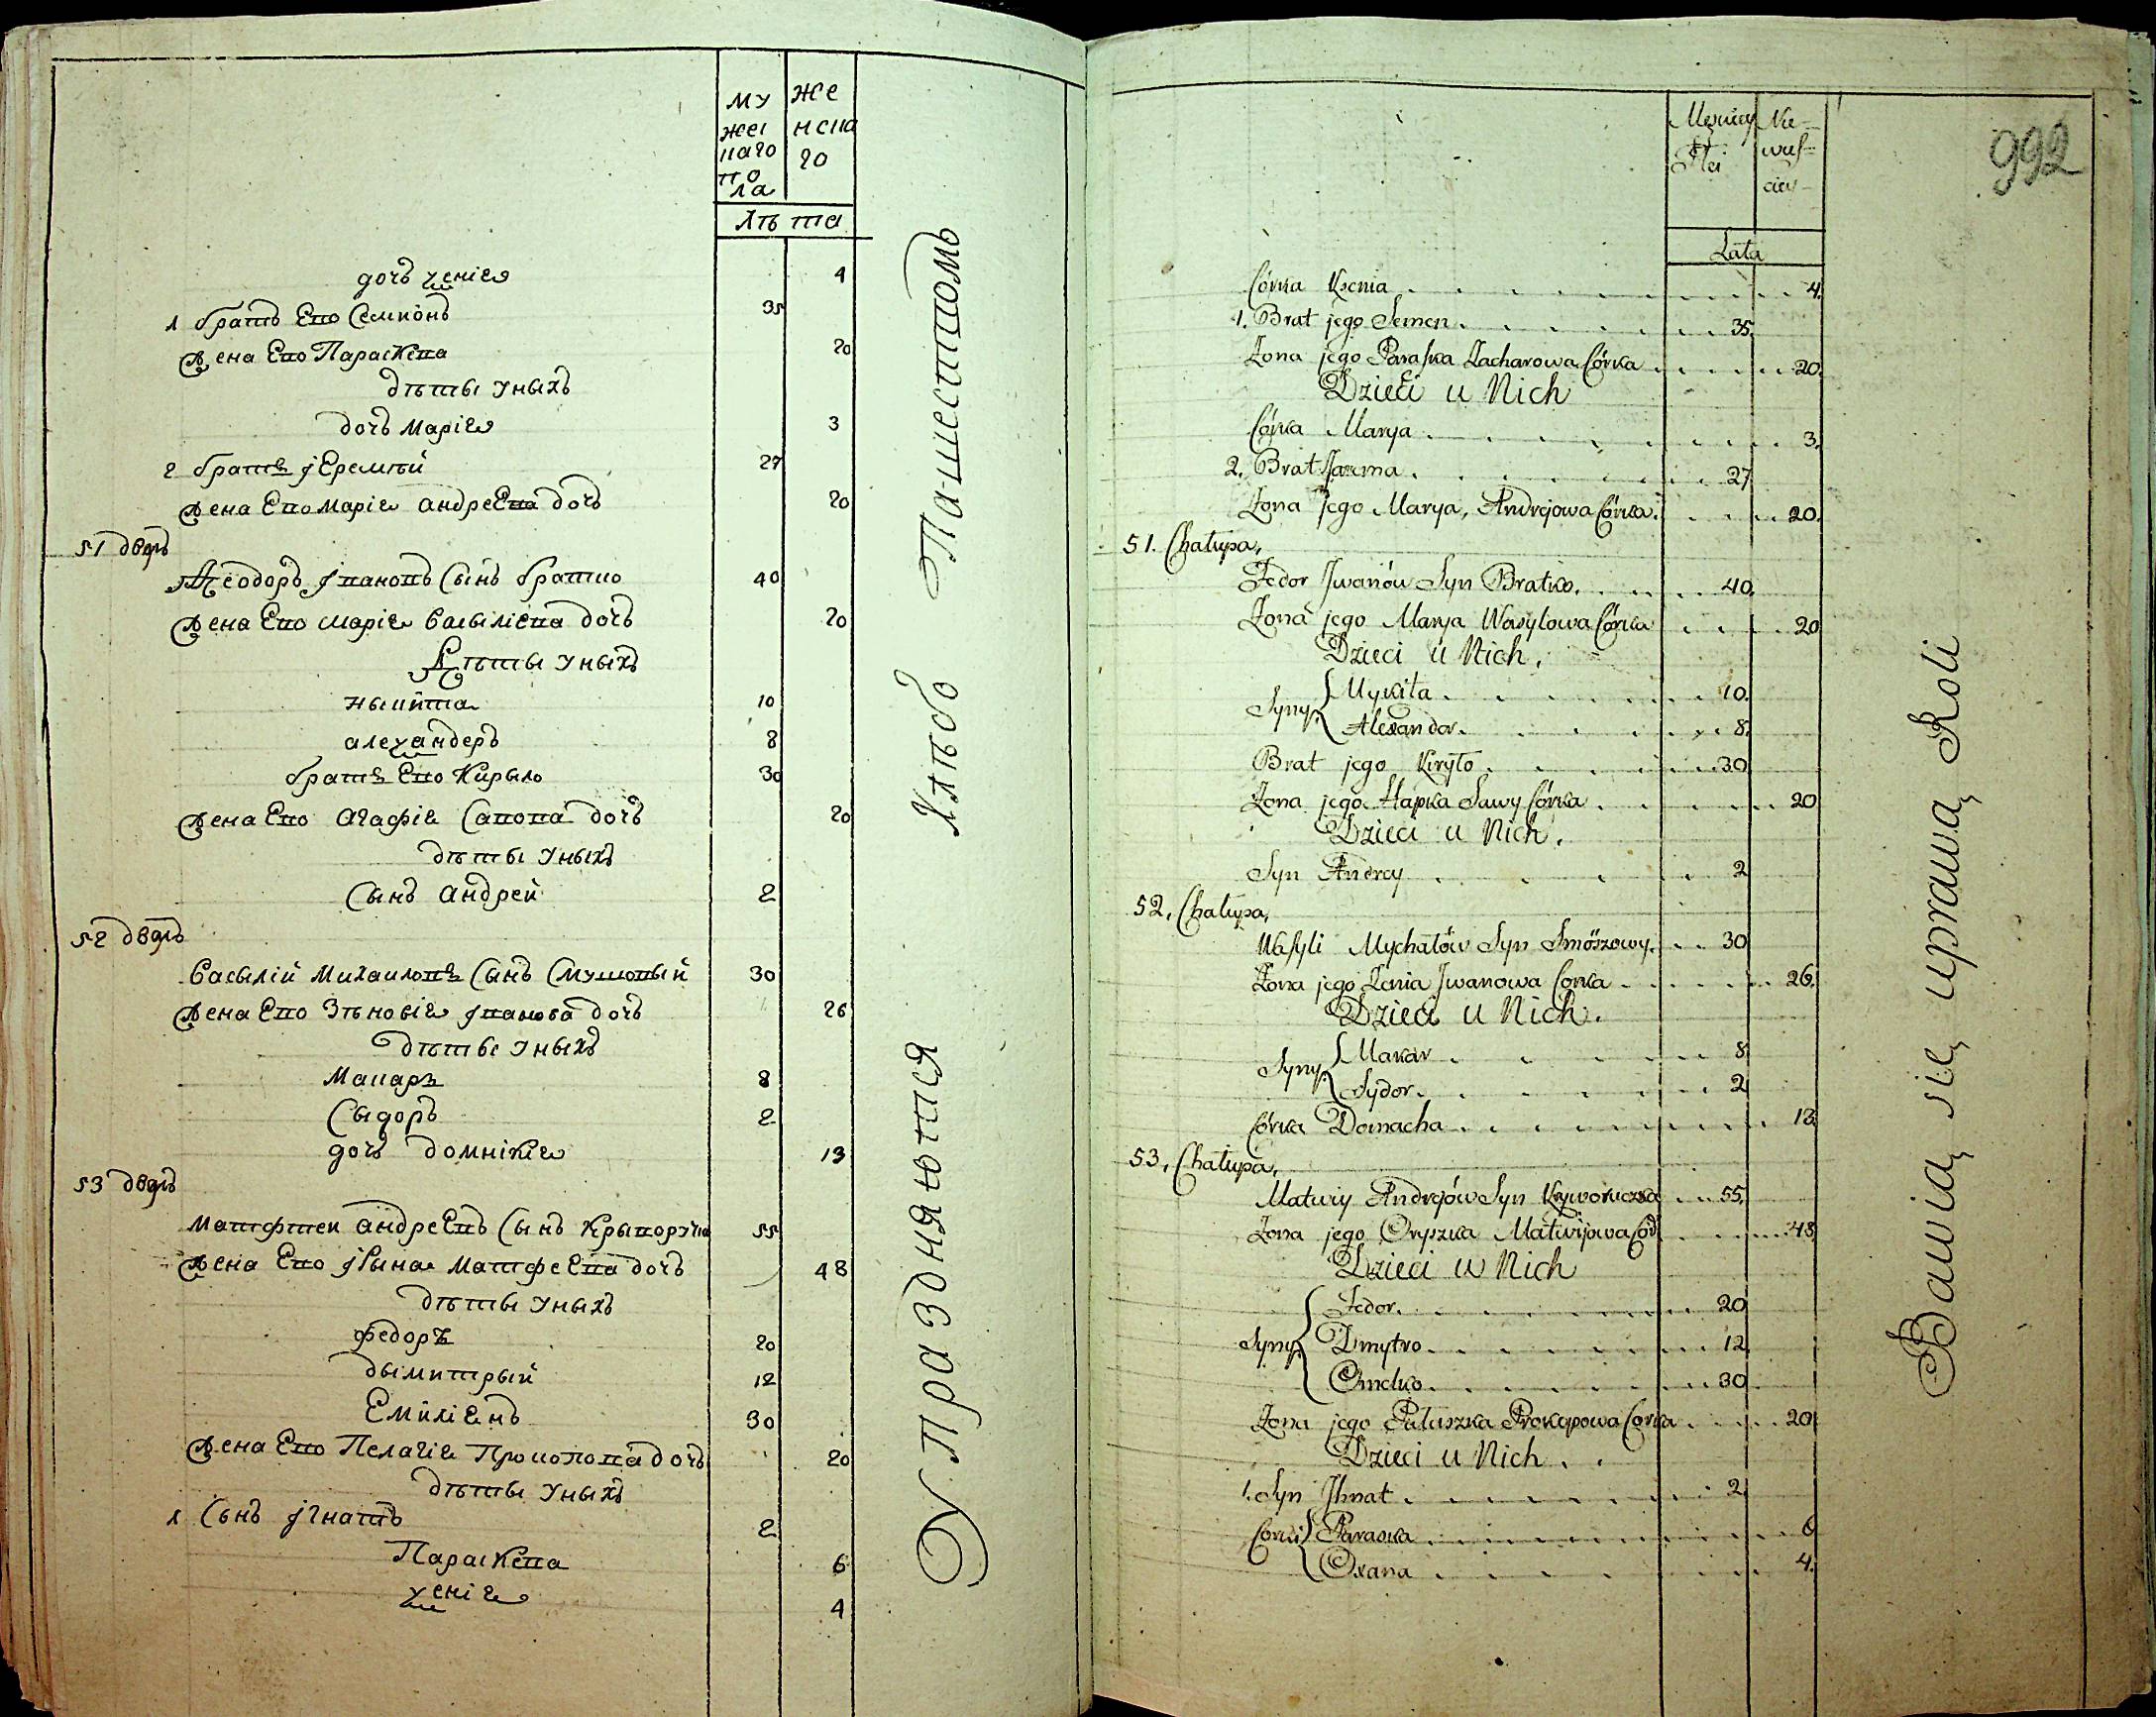 му
жес
каго
по
ла
же
нска
го
лѣта
дочъ ѯенія 4
1 братъ Его Семионъ 35
жена Его Параскева 20
дѣты уныхъ
дочъ Марія 3
2 братъ іЕремѣй 27
жена Его Марія андреЕва дочъ 20
51 дворъ
Ѳеодоръ Івановъ Сынъ братко 40
жена Его марія Васыліева дочъ 20
Дѣты уныхъ
Ныкита 10
алеѯандеръ 8
братъ Его Кирыло 30
жена Его Агафія Савова дочъ 20
дѣты уныхъ
Сынъ андрей 2
52 дворъ
Васылій Михаиловъ Сынъ Смушовый 30
жена Его Зѣновія Іванова дочъ 26
дѣты уныхъ
Макаръ 8
Сыдоръ 2
дочъ домнікія 13
53 дворъ
Матфтеи андреЕвъ Сынъ Крыворучка 55
жена Его Ірына МатфеЕва дочъ 48
дѣты уныхъ
федоръ 20
дымитрый 12
Емиліянъ 30
жена Его Пелагія Прокопова дочъ 20
дѣты уныхъ
1 Сынъ Ігнатъ 2
Параскева 6
ѯенія 4
Упраздняются Хлѣбо Пашествомъ
992
Męzkiey
Płci
Nie-
wieś-
ciey-
Lata
Córka Ksenia 4.
1. Brat jego Semen. 35.
Żona jego Paraska Zacharowa Córka 20.
Dzieci u Nich
Córka Marya. 3.
2. Brat Jarema. 27
Żona jego Marya, Andrejowa Córka. 20.
51. Chałupa,
Fedor Iwanów Syn Bratko. 40.
Żona jego Marya Wasylowa Córka 20
Dzieci u Nich.
Syny { Mykita. 10.
Alexandor. 8.
Brat jego Kiryło. 30
Żona jego Hapka Sawy Córka. 20
Dzieci u Nich.
Syn Andrey 2
52, Chałupa,
Wasyli Mychałów Syn Smószowy. 30
Żona jego Zenia Iwanowa Corka 26.
Dzieci u Nich.
Syny { Makar 8
Sydor. 2
Córka Domacha. 13.
53, Chałupa,
Matwiy Andrejów Syn Kryworuczka 55.
Żona jego Oryszka Matwijowa Cór 48
Dzieci u Nich
Syny { Fedor. 20
Dmytro. 12.
Omelko. 30
Żona jego Pałaszka Prokopowa Corka. 20
Dzieci u Nich.
1. Syn Ihnat. 2.
Corki { Paraska 6
Oxana. 4.
Bawią się uprawą Roli